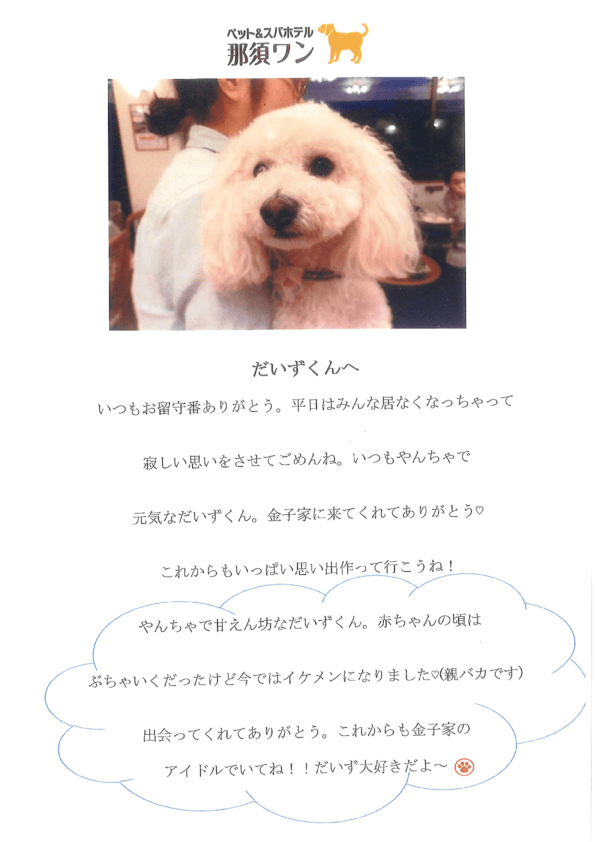 ペット&スパホテル
那須ワン
だいずくんへ
いつもお留守番ありがとう。平日はみんな居なくなっちゃって
寂しい思いをさせてごめんね。いつもやんちゃで
元気なだいずくん。金子家に来てくれてありがとう♡
これからもいっぱい思い出作って行こうね！
やんちゃで甘えん坊なだいずくん。赤ちゃんの頃は
ぶちゃいくだったけど今ではイケメンになりました♡(親バカです)
出会ってくれてありがとう。これからも金子家の
アイドルでいてね！！だいず大好きだよ～